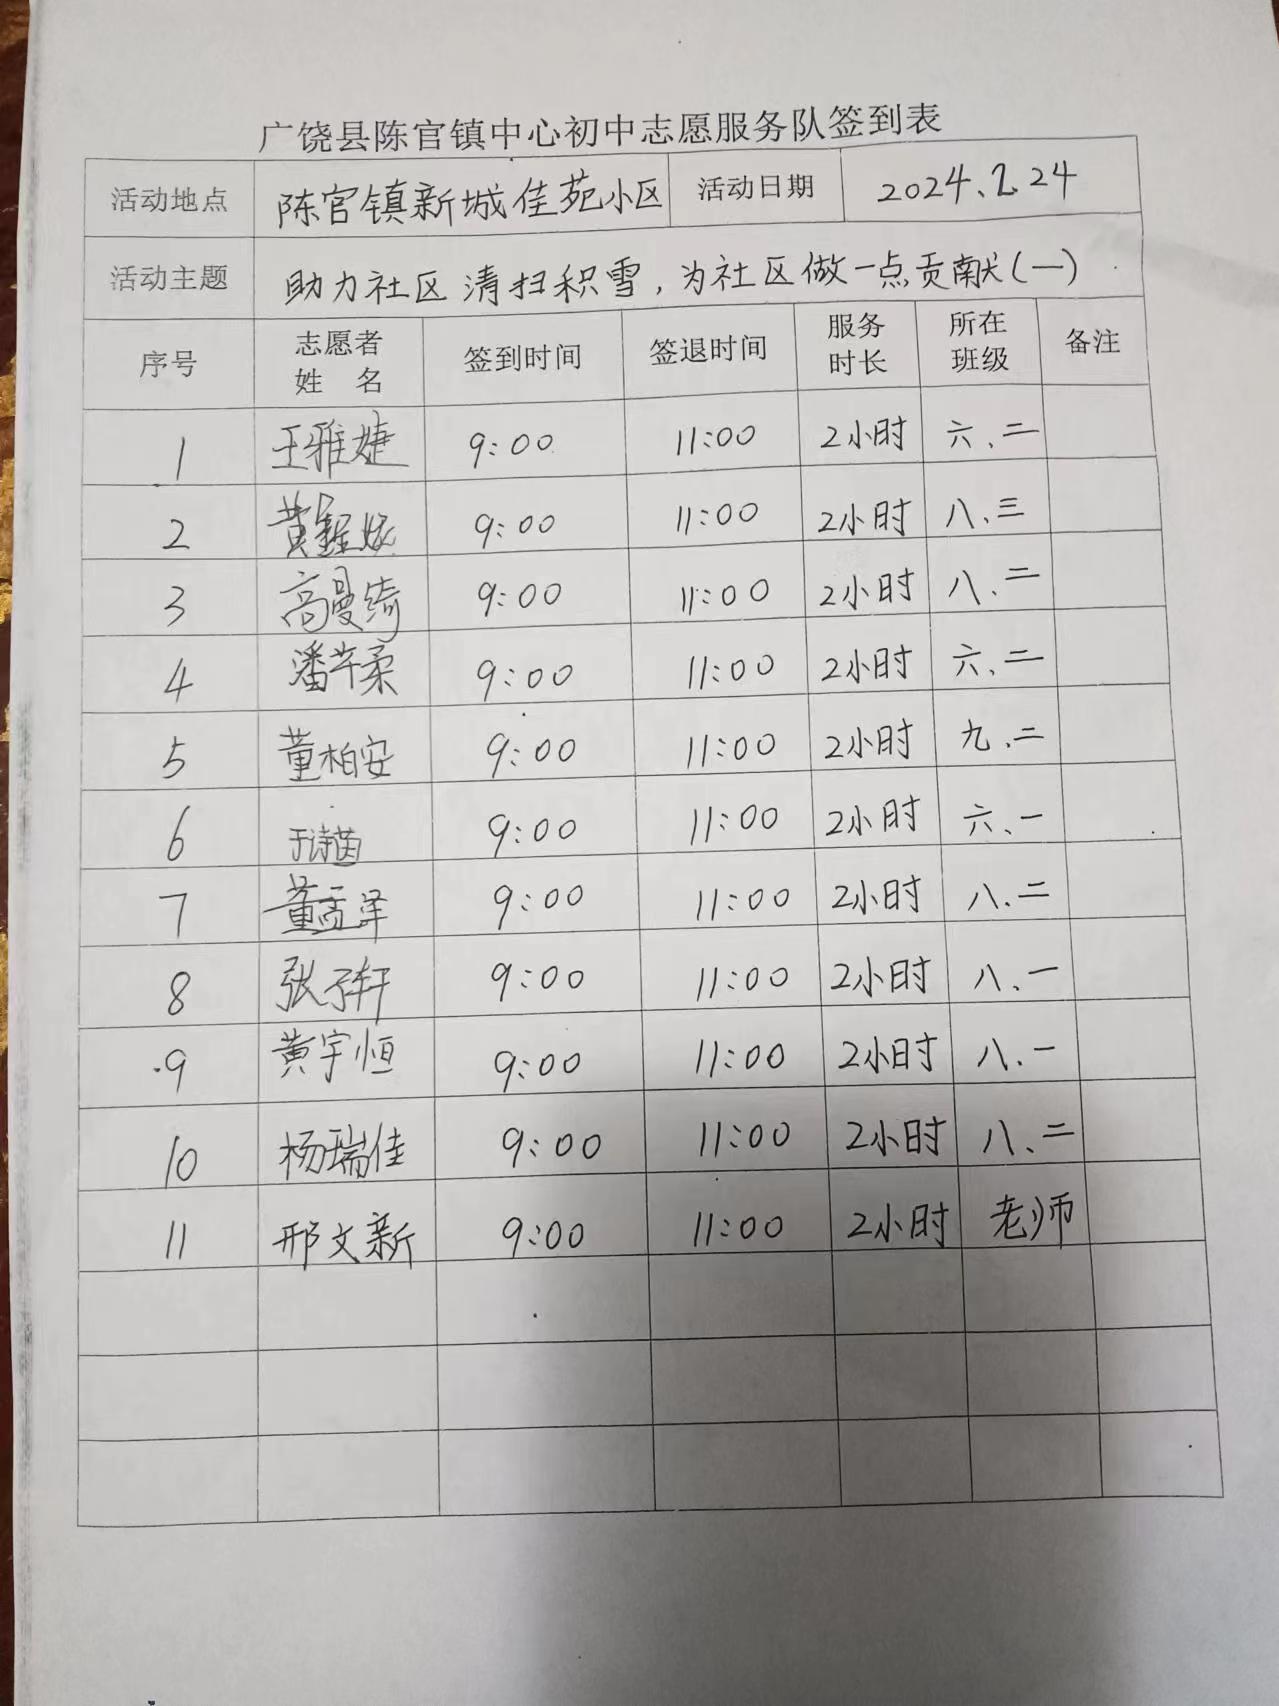 广饶县陈官镇中心初中志愿服务队签到表
活动地点 陈官镇新城佳苑小区 活动日期 2024.2.24
活动主题 助力社区清扫积雪，为社区做一点贡献（一）
序号 志愿者姓名 签到时间 签退时间 服务时长 所在班级 备注
1 王雅婕 9:00 11:00 2小时 六.二
2 黄 9:00 11:00 2小时 八.三
3 高曼绮 9:00 11:00 2小时 八.二
4 潘芊柔 9:00 11:00 2小时 六.二
5 董柏安 9:00 11:00 2小时 九.二
6 于诗茵 9:00 11:00 2小时 六.一
7 董孟泽 9:00 11:00 2小时 八.二
8 张子轩 9:00 11:00 2小时 八.一
9 黄宇恒 9:00 11:00 2小时 八.一
10 杨瑞佳 9:00 11:00 2小时 八.二
11 邢文新 9:00 11:00 2小时 老师